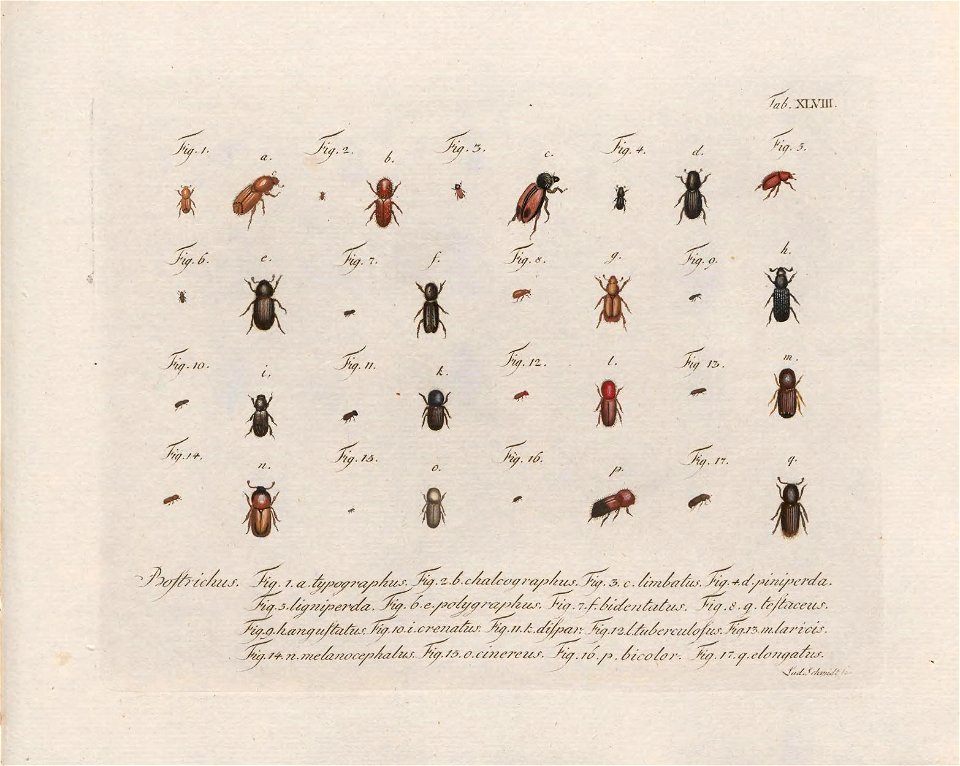 Tab. XLVIII.
Fig. 1. a. Fig. 2. b. Fig. 3. c. Fig. 4. d. Fig. 5.
Fig. 6. e. Fig. 7. f. Fig. 8. g. Fig. 9. h.
Fig. 10. i. Fig. 11. k. Fig. 12. l. Fig. 13. m.
Fig. 14. n. Fig. 15. o. Fig. 16. p. Fig. 17. q.
Boſtrichus. Fig. 1. a. typographus. Fig. 2. b. chalcographus. Fig. 3. c. limbatus. Fig. 4. d. piniperda.
Fig. 5. ligniperda. Fig. 6. e. polygraphus. Fig. 7. f. bidentatus. Fig. 8. g. teſtaceus.
Fig. 9. h. anguſtatus. Fig. 10. i. crenatus. Fig. 11. k. diſpar. Fig. 12. l. tuberculoſus. Fig. 13. m. laricis.
Fig. 14. n. melanocephalus. Fig. 15. o. cinereus. Fig. 16. p. bicolor. Fig. 17. q. elongatus.
Lud. Schmidt